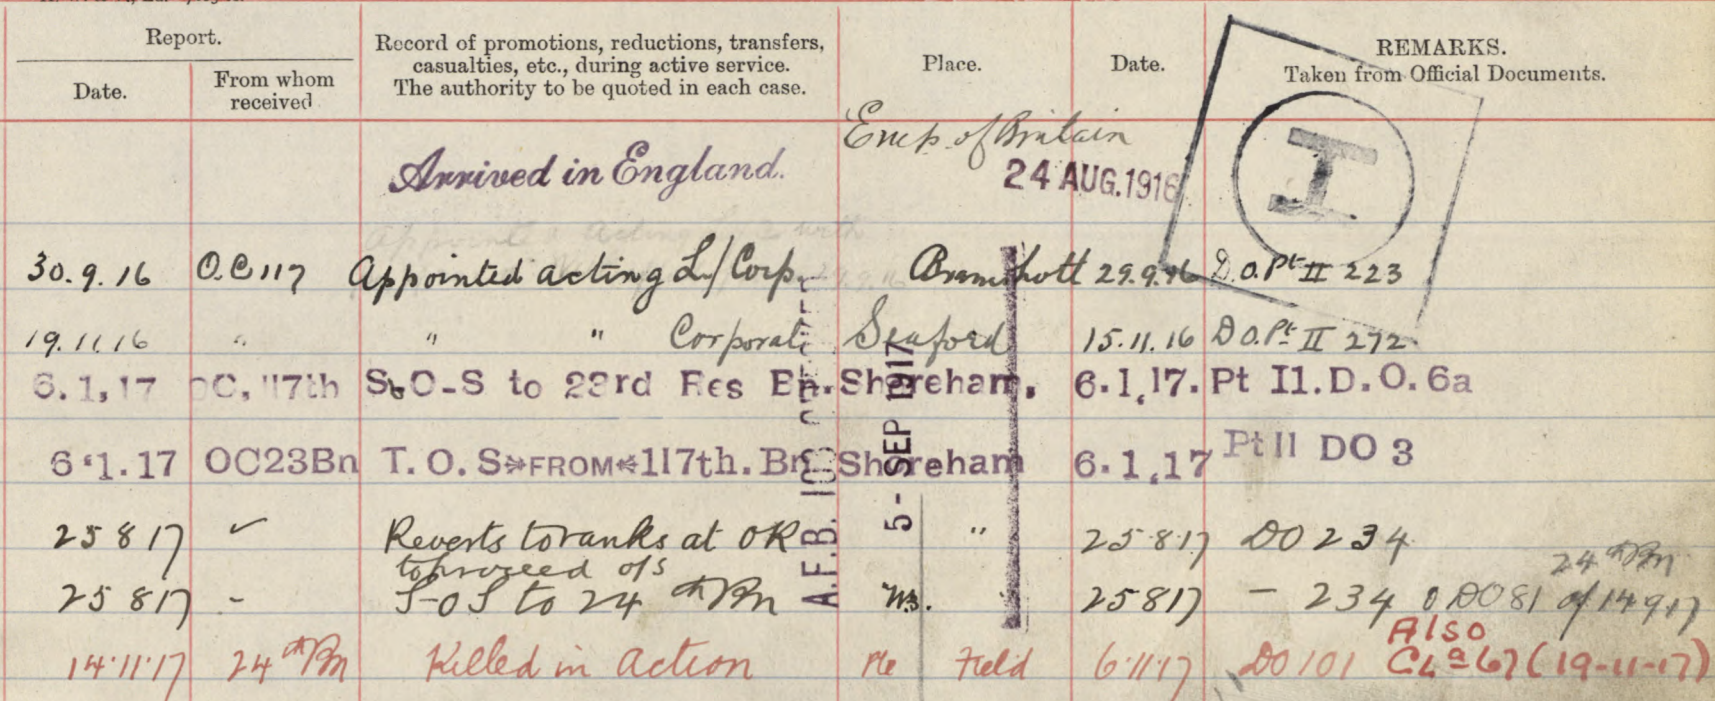 Report.
Date.
From whom
received
Record of promotions, reductions, transfers,
casualties, etc., during active service.
The authority to be quoted in each case.
Place.
Date.
REMARKS.
Taken from Official Documents.
I
Arrived in England. Emp. of Britain
24 AUG. 1916
30.9.16 O.C 117 Appointed acting L/Corp. Bramshott 29.9.16 D.O. Pt II 223
19.11.16 " " " Corporal Seaford 15.11.16 D O. Pt II 272
6.1,17 OC, 117th S.O-S to 23rd Res Bn. Shoreham, 6.1,17. Pt I1. D. O. 6a
6.1.17 OC23Bn T. O. S FROM 117th. Bn Shoreham 6.1,17 Pt II DO 3
25 8 17 Reverts to ranks at OR " 25.8.17 DO 234
to proceed o/s
25 8 17 - S-O-S to 24th Bn 25 8 17 - 234 DO 81 of 14 9 17
24th Bn
14.11.17 24th Bn Killed in Action Field 6.11.17 DO 101
Also
(19-11-17)
A.F.B. 103
5 - SEP 1917